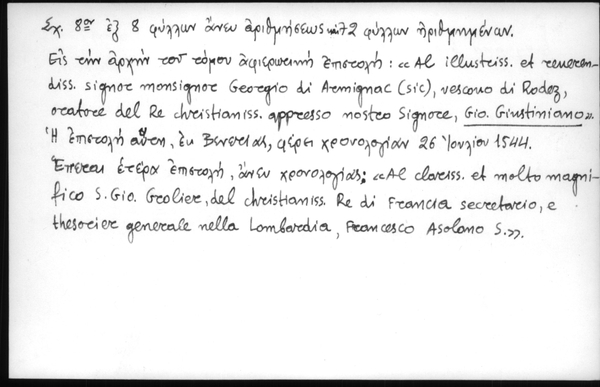 Σχ. 8ον ἐξ 8 φύλλων ἄνευ ἀριθμήσεως καὶ 72 φύλλων ἠριθμημένων.
Εἰς τὴν ἀρχὴν τοῦ τόμου ἀφιερωτικὴ ἐπιστολή: «Al illustriss. et reveren-
diss. signor monsignor Georgio di Armignac (sic), vescovo di Rodez,
oratore del Re christianiss. appresso nostro Signore, Gio. Giustiniano».
Ἡ ἐπιστολὴ αὕτη, ἐκ Βενετίας, φέρει χρονολογίαν 26 Ἰουλίου 1544.
Ἕπεται ἑτέρα ἐπιστολή, ἄνευ χρονολογίας: «Al clariss. et molto magni-
fico S. Gio. Grolier, del christianiss. Re di Francia secretario, e
thesorier generale nella Lombardia, Francesco Asolano S.».